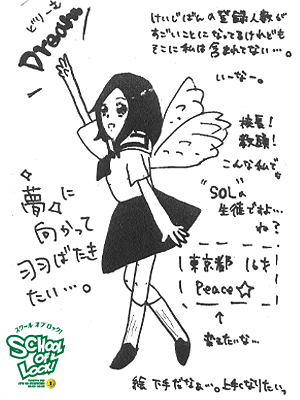 どりーむ
Dream
けいじばんの登録人数が
すごいことになってるけれども
そこに私は含まれてない…。
いーなー。
校長！
教頭！
こんな私でも
"SOL"の
生徒ですよ…
ね？
東京都 16才
Peace☆
↑
変えたいな…
夢に
向かって
羽ばたき
たい…。
スクール オブ ロック！
SCHOOL
OF
LOCK!
絵 下手だなぁ…。上手くなりたいっ。